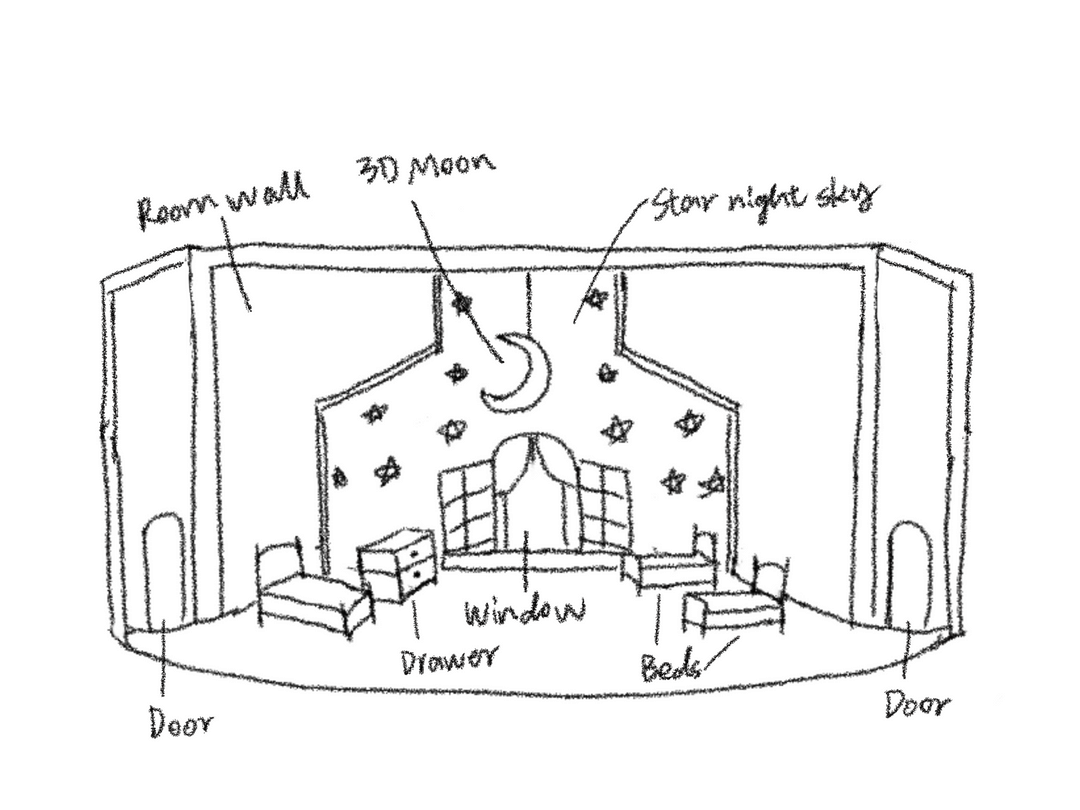 Room wall
3D Moon
Star night sky
Window
Drawer
Beds
Door
Door